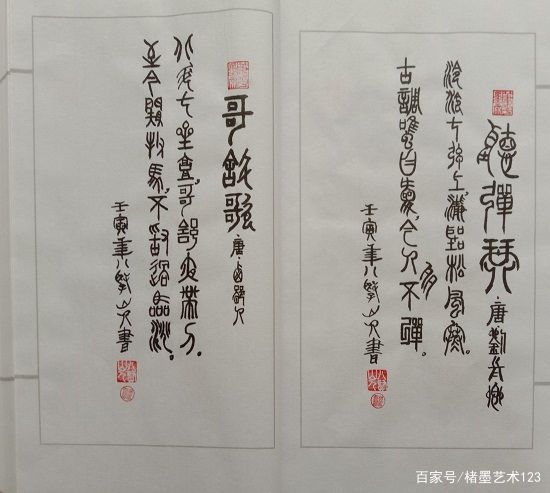 聽彈琴 唐劉長卿
泠泠七弦上,靜聽松風寒。
古調雖自愛,今人多不彈。
壬寅年八 山人書
哥舒歌 唐西鄙人
北斗七星高,哥舒夜帶刀。
至今窺牧馬,不敢過臨洮。
壬寅年八 山人書
百家号/楮墨艺术123